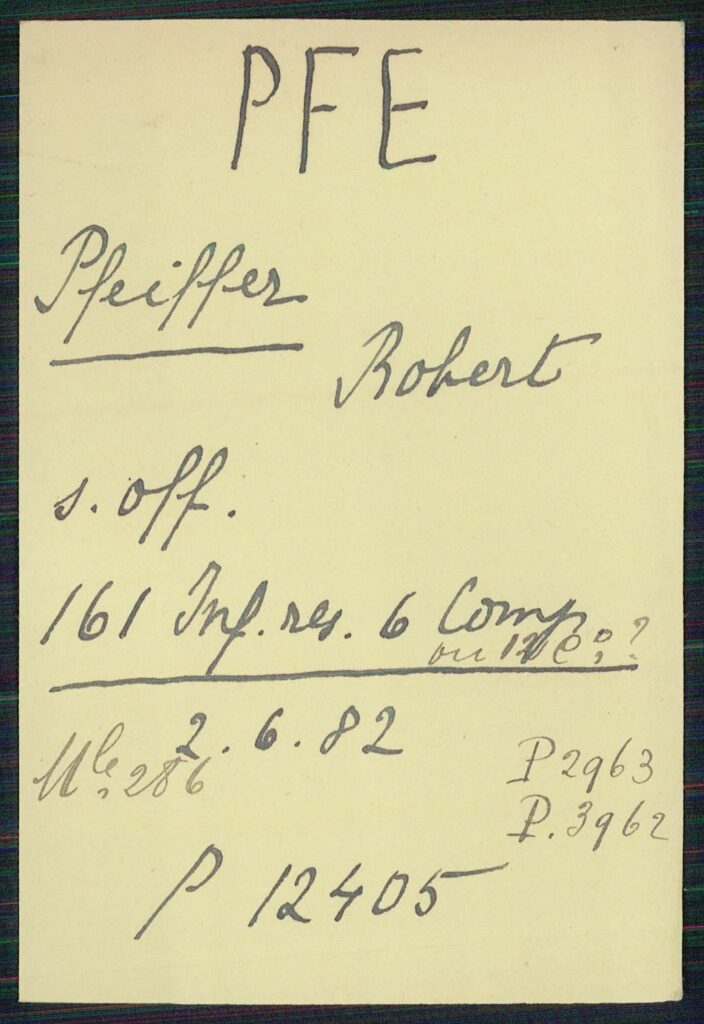 PFE
Pfeiffer
Robert
s. off.
161 Inf. res. 6 Comp
ou 12 Co?
2. 6. 82
Mle 286
P 2963
P. 3962
P 12405